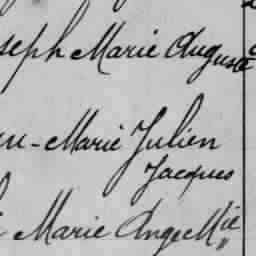 seph Marie Auguste
eu-Marie Julien
Jacques
Marie Ange Mie